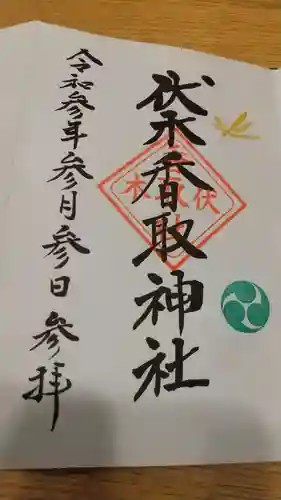 伏木香取神社
令和参年参月参日 参拝
伏
木